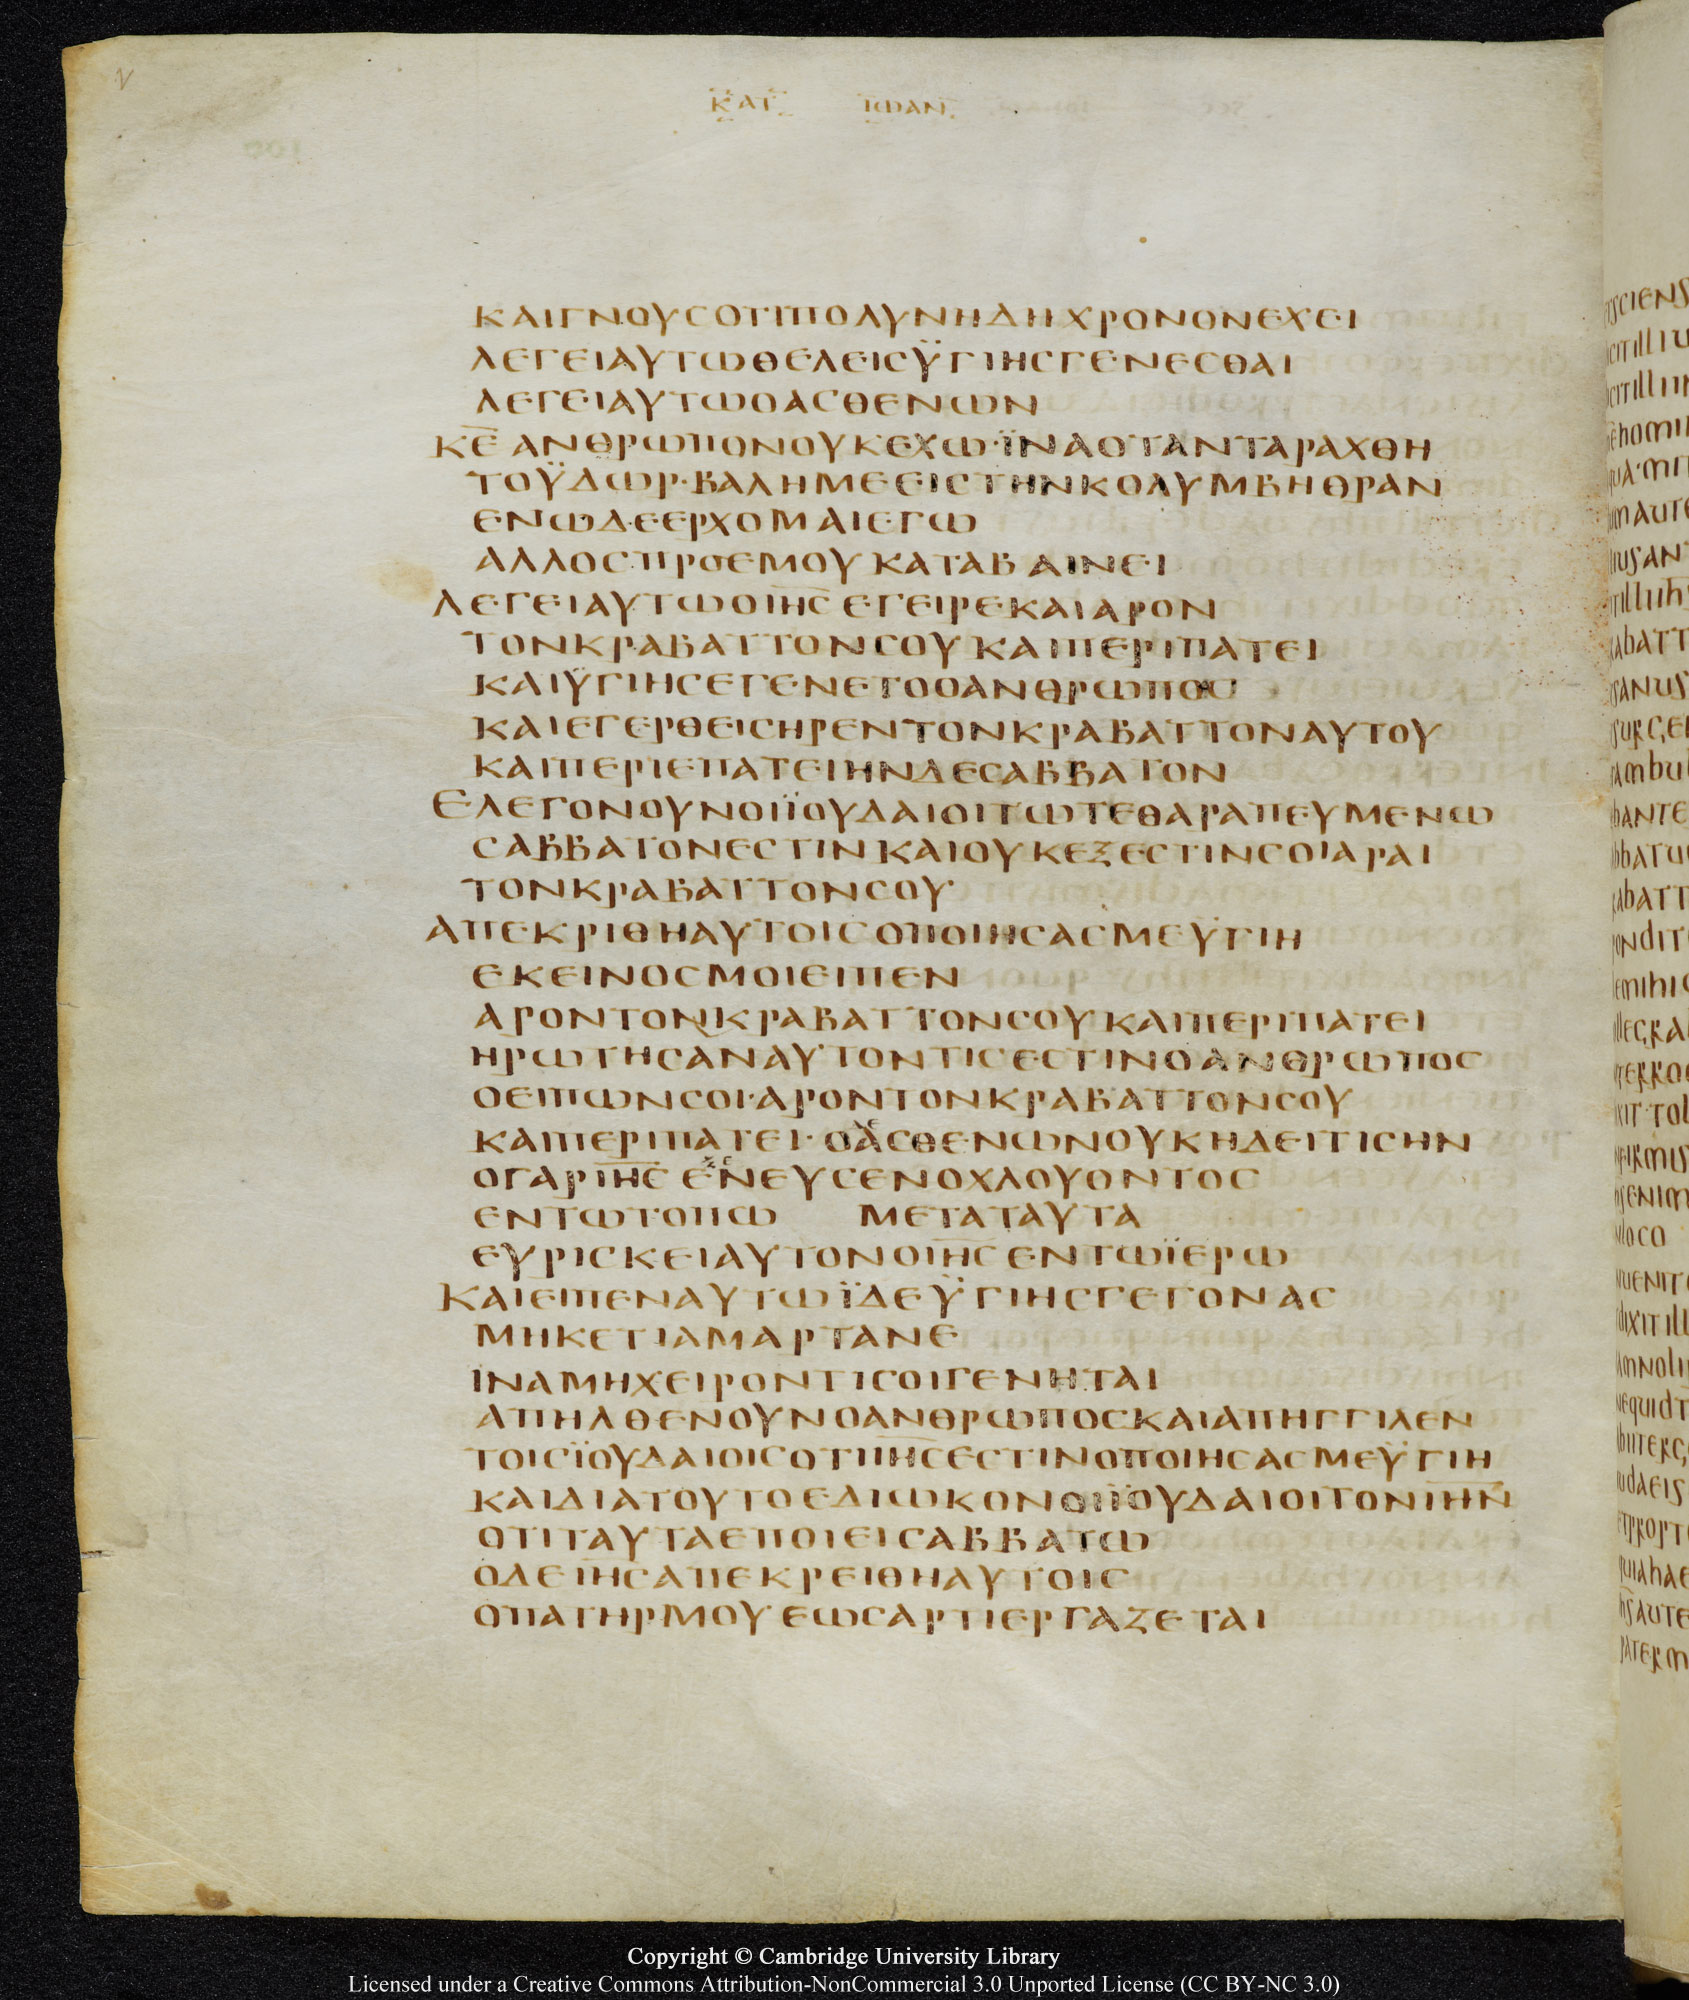 ΚΑΤ ΙΩΑΝ
ΚΑΙΓΝΟΥϹΟΤΙΠΟΛΥΝΗΔΗΧΡΟΝΟΝΕΧΕΙ
ΛΕΓΕΙΑΥΤΩΘΕΛΕΙϹΫΓΙΗϹΓΕΝΕϹΘΑΙ
ΛΕΓΕΙΑΥΤΩΟΑϹΘΕΝΩΝ
Κ̅Ε̅ ΑΝΘΡΩΠΟΝΟΥΚΕΧΩ·ΪΝΑΟΤΑΝΤΑΡΑΧΘΗ
ΤΟΫΔΩΡ·ΒΑΛΗΜΕΕΙϹΤΗΝΚΟΛΥΜΒΗΘΡΑΝ
ΕΝΩΔΕΕΡΧΟΜΑΙΕΓΩ
ΑΛΛΟϹΠΡΟΕΜΟΥΚΑΤΑΒΑΙΝΕΙ
ΛΕΓΕΙΑΥΤΩΟΙ̅Η̅Ϲ̅ΕΓΕΙΡΕΚΑΙΑΡΟΝ
ΤΟΝΚΡΑΒΑΤΤΟΝϹΟΥΚΑΙΠΕΡΙΠΑΤΕΙ
ΚΑΙΫΓΙΗϹΕΓΕΝΕΤΟΟΑΝΘΡΩΠΟϹ
ΚΑΙΕΓΕΡΘΕΙϹΗΡΕΝΤΟΝΚΡΑΒΑΤΤΟΝΑΥΤΟΥ
ΚΑΙΠΕΡΙΕΠΑΤΕΙΗΝΔΕϹΑΒΒΑΤΟΝ
ΕΛΕΓΟΝΟΥΝΟΙΪΟΥΔΑΙΟΙΤΩΤΕΘΑΡΑΠΕΥΜΕΝΩ
ϹΑΒΒΑΤΟΝΕϹΤΙΝΚΑΙΟΥΚΕΞΕϹΤΙΝϹΟΙΑΡΑΙ
ΤΟΝΚΡΑΒΑΤΤΟΝϹΟΥ
ΑΠΕΚΡΙΘΗΑΥΤΟΙϹΟΠΟΙΗϹΑϹΜΕΫΓΙΗ
ΕΚΕΙΝΟϹΜΟΙΕΙΠΕΝ
ΑΡΟΝΤΟΝΚΡΑΒΑΤΤΟΝϹΟΥΚΑΙΠΕΡΙΠΑΤΕΙ
ΗΡΩΤΗϹΑΝΑΥΤΟΝΤΙϹΕϹΤΙΝΟΑΝΘΡΩΠΟϹ
ΟΕΙΠΩΝϹΟΙ·ΑΡΟΝΤΟΝΚΡΑΒΑΤΤΟΝϹΟΥ
ΚΑΙΠΕΡΙΠΑΤΕΙ·ΟΑϹΘΕΝΩΝΟΥΚΗΔΕΙΤΙϹΗΝ
ΟΓΑΡΙ̅Η̅Ϲ̅ΕΝΕΥϹΕΝΟΧΛΟΥΟΝΤΟϹ
ΕΝΤΩΤΟΠΩ ΜΕΤΑΤΑΥΤΑ
ΕΥΡΙϹΚΕΙΑΥΤΟΝΟΙ̅Η̅Ϲ̅ΕΝΤΩΪΕΡΩ
ΚΑΙΕΙΠΕΝΑΥΤΩΪΔΕΫΓΙΗϹΓΕΓΟΝΑϹ
ΜΗΚΕΤΙΑΜΑΡΤΑΝΕ
ΙΝΑΜΗΧΕΙΡΟΝΤΙϹΟΙΓΕΝΗΤΑΙ
ΑΠΗΛΘΕΝΟΥΝΟΑΝΘΡΩΠΟϹΚΑΙΑΠΗΓΓΙΛΕΝ
ΤΟΙϹΪΟΥΔΑΙΟΙϹΟΤΙΙ̅Η̅Ϲ̅ΕϹΤΙΝΟΠΟΙΗϹΑϹΜΕΫΓΙΗ
ΚΑΙΔΙΑΤΟΥΤΟΕΔΙΩΚΟΝΟΙΪΟΥΔΑΙΟΙΤΟΝΙ̅Η̅Ν̅
ΟΤΙΤΑΥΤΑΕΠΟΙΕΙϹΑΒΒΑΤΩ
ΟΔΕΙ̅Η̅Ϲ̅ΑΠΕΚΡΕΙΘΗΑΥΤΟΙϹ
ΟΠΑΤΗΡΜΟΥΕΩϹΑΡΤΙΕΡΓΑΖΕΤΑΙ
Copyright © Cambridge University Library
Licensed under a Creative Commons Attribution-NonCommercial 3.0 Unported License (CC BY-NC 3.0)